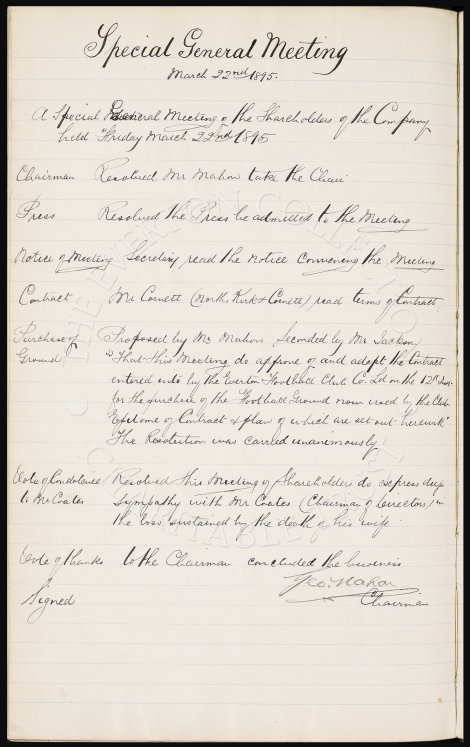 Special General Meeting
March 22nd 1895.
A Special General Meeting of the Shareholders of the Company
held Friday March 22nd 1895
Chairman Resolved Mr Mahon take the Chair
Press Resolved the Press be admitted to the Meeting
Notice of Meeting Secretary read the notice convening the Meeting
Contract Mr Cornett (North, Kirk & Cornett) read terms of Contract.
Purchase of Proposed by Mr Mahon Seconded by Mr Jackson
Ground "That this Meeting do approve of and adopt the Contract
entered into by the Everton Football Club Co. Ld on the 12th Inst
for the purchase of the Football Ground now used by the Club
Epitome of Contract & plan of which are set out herewith"
The Resolution was carried unanimously.
Vote of Condolence Resolved this Meeting of Shareholders do express deep
to Mr Coates sympathy with Mr Coates (Chairman of Directors) in
the loss sustained by the death of his wife.
Vote of thanks to the Chairman concluded the business
Geo. Mahon
Signed Chairman
THE EVERTON COLLECTION
CHARITABLE TRUST